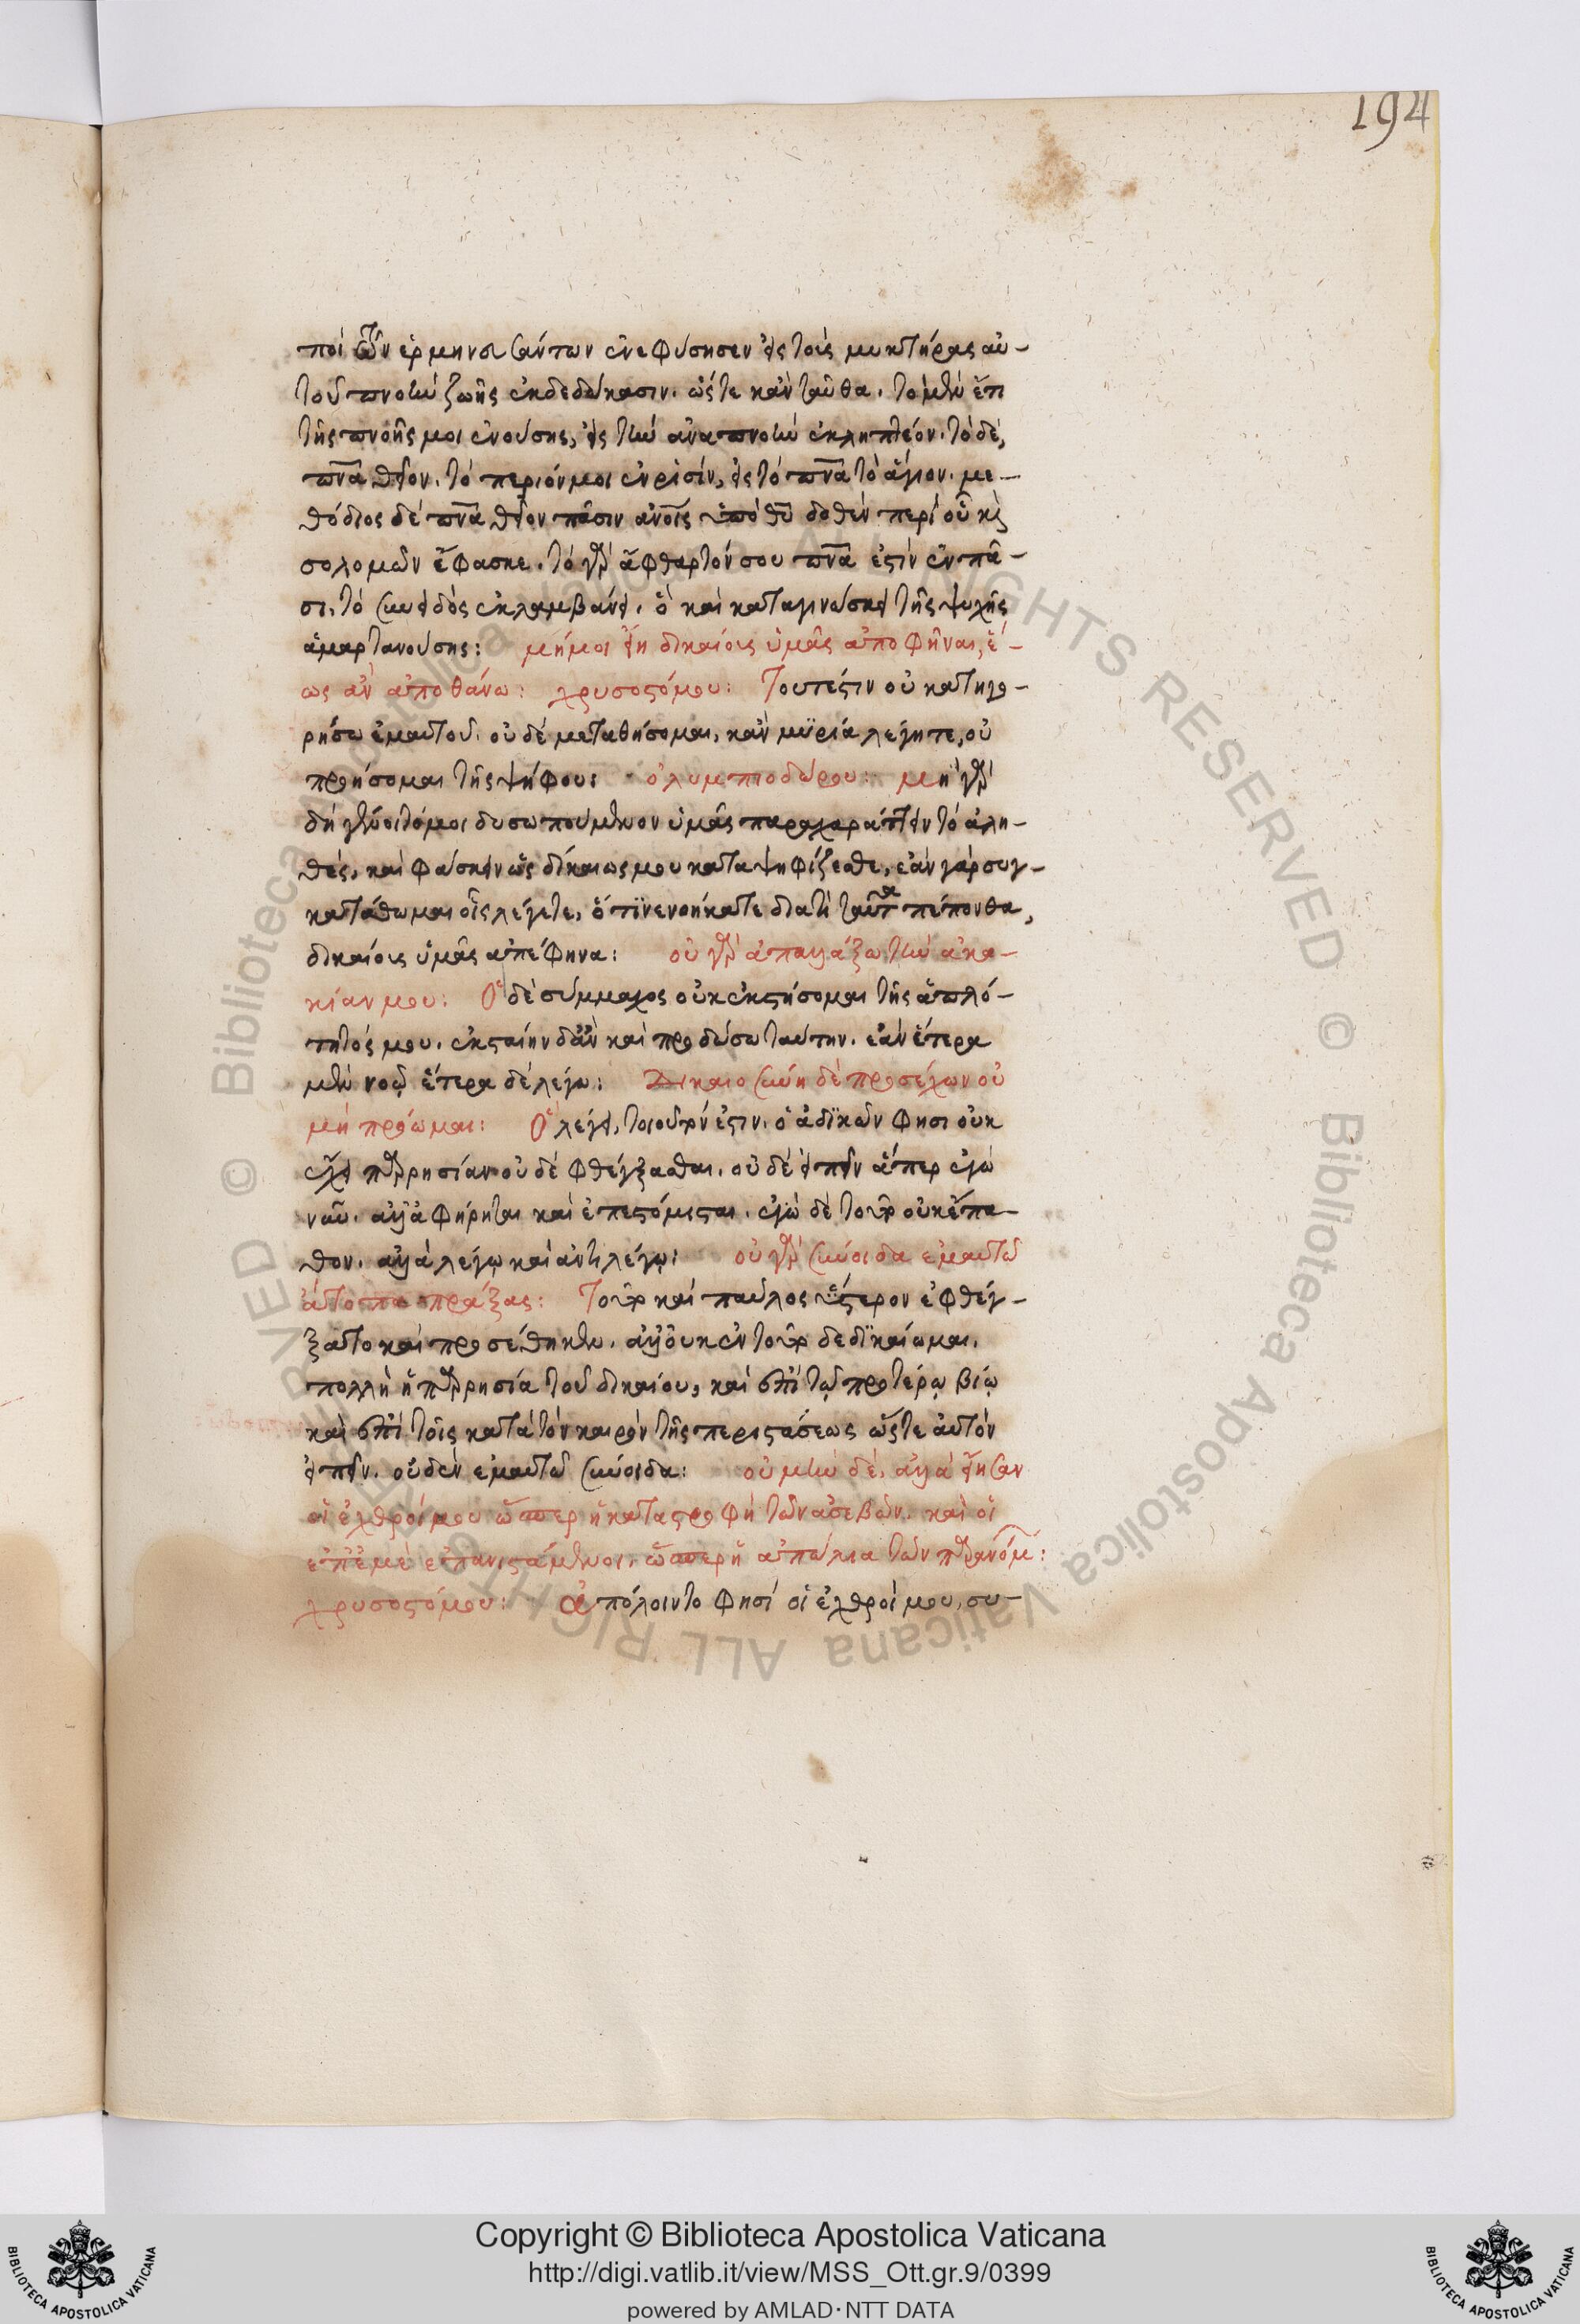 194
ποὶ τῶν ἑρμηνευσάντων ἐνεφύσησεν εἰς τοὺς μυκτῆρας αὐ-
τοῦ πνοὴν ζωῆς ἐκδεδώκασιν. ὥστε κἀνταῦθα. τὸ μὲν ἔτι
τῆς πνοῆς μοι ἐνούσης, εἰς τὴν ἀναπνοὴν ἐκληπτέον. τὸ δὲ,
πνα θεῖον. τὸ περιόν μοι ἐν ρισίν, εἰς τὸ πνα τὸ ἅγιον. με-
θόδιος δὲ πνα θεῖον πᾶσιν ἀνοις ὑπὸ θυ δοθὲν περὶ οὗ καὶ
σολομῶν ἔφασκε. τὸ γὰρ ἄφθαρτόν σου πνα ἐστὶν ἐν πᾶ-
σι, τὸ συνειδὸς ἐκλαμβάνει. ὃ καὶ καταγινώσκει τῆς ψυχῆς
ἁμαρτανούσης: μή μοι εἴη δικαίους ὑμᾶς ἀποφῆναι, ἕ-
ως ἂν ἀποθάνω: χρυσοστόμου: Τουτέστιν οὐ κατηγο-
ρήσω ἐμαυτοῦ. οὐδὲ μεταθήσομαι, κἂν μυρία λέγητε, οὐ
προήσομαι τῆς ψήφου: ὀλυμπιοδώρου: μὴ γὰρ
δὴ γένοιτό μοι δυσωπούμενον ὑμᾶς παραχαράττειν τὸ ἀλη-
θές, καὶ φάσκειν ὡς δικαίως μου καταψηφίζεσθε, ἐὰν γὰρ συγ-
κατάθωμαι οἷς λέγετε, ὅτι νενοήκατε διατί ταῦτα πέπονθα,
δικαίους ὑμᾶς ἀπέφηνα: οὐ γὰρ ἀπαλλάξω τὴν ἀκα-
κίαν μου: Ὁ δὲ σύμμαχος οὐκ ἐκστήσομαι τῆς ἁπλό-
τητός μου. ἐκσταίην δ' ἂν καὶ προδώσω ταύτην. ἐὰν ἕτερα
μὲν νοῶ ἕτερα δὲ λέγω: Δικαιοσύνη δὲ προσέχων οὐ
μὴ πρόωμαι: Ὃ λέγει, τοιοῦτόν ἐστιν. ὁ ἀδικῶν φησι οὐκ
ἔχει παρρησίαν οὐδὲ φθέγξασθαι. οὐδὲ εἰπεῖν ἅπερ ἐγὼ
νῦν. ἀλλ' ἀφῄρηται καὶ ἐπεστόμισται. ἐγὼ δὲ τοῦτο οὐκ ἔπα-
θον. ἀλλὰ λέγω καὶ ἀντιλέγω: οὐ γὰρ σύνοιδα ἐμαυτῷ
ἄτοπα πράξας: Τοῦτο καὶ παῦλος ὕστερον ἐφθέγ-
ξατο καὶ προσέθηκεν. ἀλλ' οὐκ ἐν τούτῳ δεδικαίωμαι.
πολλὴ ἡ παρρησία τοῦ δικαίου, καὶ ἐπὶ τῷ προτέρῳ βίῳ
καὶ ἐπὶ τοῖς κατὰ τὸν καιρὸν τῆς περιστάσεως ὥστε αὐτὸν
εἰπεῖν. οὐδὲν ἐμαυτῷ σύνοιδα: οὐ μὴν δὲ, ἀλλὰ εἴησαν
οἱ ἐχθροί μου ὥσπερ ἡ καταστροφὴ τῶν ἀσεβῶν. καὶ οἱ
ἐπ' ἐμὲ ἐπανιστάμενοι, ὥσπερ ἡ ἀπώλεια τῶν παρανόμ:
χρυσοστόμου: ἀπόλοιντο φησὶ οἱ ἐχθροί μου, συ-
Copyright © Biblioteca Apostolica Vaticana
http://digi.vatlib.it/view/MSS_Ott.gr.9/0399
powered by AMLAD·NTT DATA